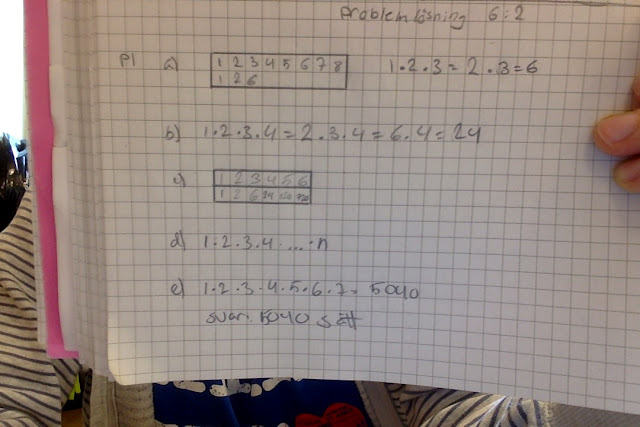 Problemlösning 6:2
P1 a) 1 2 3 4 5 6 7 8 1·2·3 = 2·3 = 6
1 2 6
b) 1·2·3·4 = 2·3·4 = 6·4 = 24
c) 1 2 3 4 5 6
1 2 6 24 120 720
d) 1·2·3·4· ... ·n
e) 1·2·3·4·5·6·7 = 5040
svar: 5040 sätt